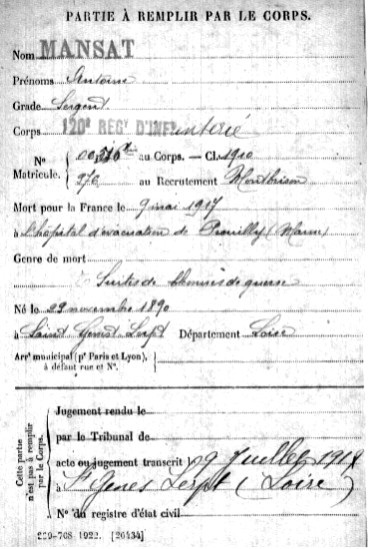 PARTIE À REMPLIR PAR LE CORPS.
Nom MANSAT
Prénoms Antoine
Grade Sergent
Corps 120e REGt D'INFanterie
No Matricule. au Corps. — Cl. 1910
976 au Recrutement Montbrison
Mort pour la France le 9 mai 1917
à l'hôpital d'évacuation de Prouilly (Marne)
Genre de mort
Suites de blessures de guerre
Né le 29 novembre 1890
à Saint Genest Lerpt Département Loire
Arrt municipal (pr Paris et Lyon), à défaut rue et No.
Cette partie n'est pas à remplir par le Corps.
Jugement rendu le
par le Tribunal de
acte ou jugement transcrit le 9 Juillet
à St Genes Lerpt (Loire)
No du registre d'état civil
[26434]